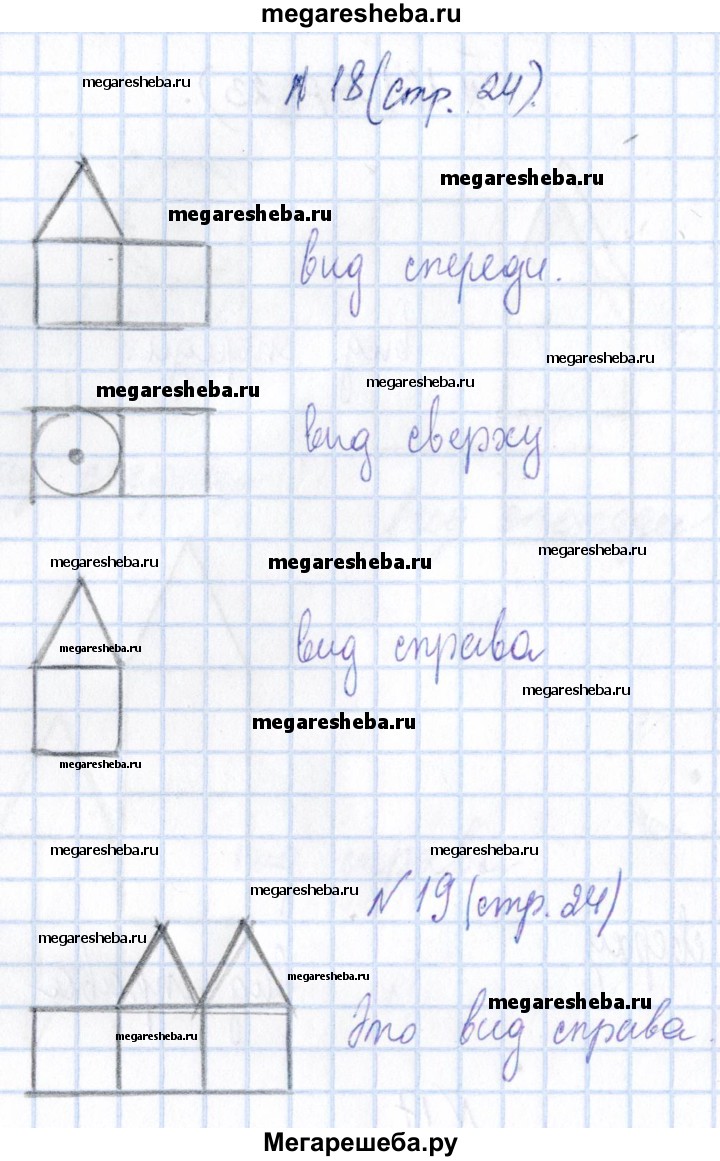 megaresheba.ru
megaresheba.ru
N 18 (стр. 24).
megaresheba.ru
megaresheba.ru
вид спереди.
megaresheba.ru
megaresheba.ru
megaresheba.ru
вид сверху
megaresheba.ru
megaresheba.ru
megaresheba.ru
megaresheba.ru
вид справа
megaresheba.ru
megaresheba.ru
megaresheba.ru
megaresheba.ru
megaresheba.ru
megaresheba.ru
N 19 (стр. 24)
megaresheba.ru
megaresheba.ru
megaresheba.ru
megaresheba.ru
Это вид справа.
Мегарешеба.ру